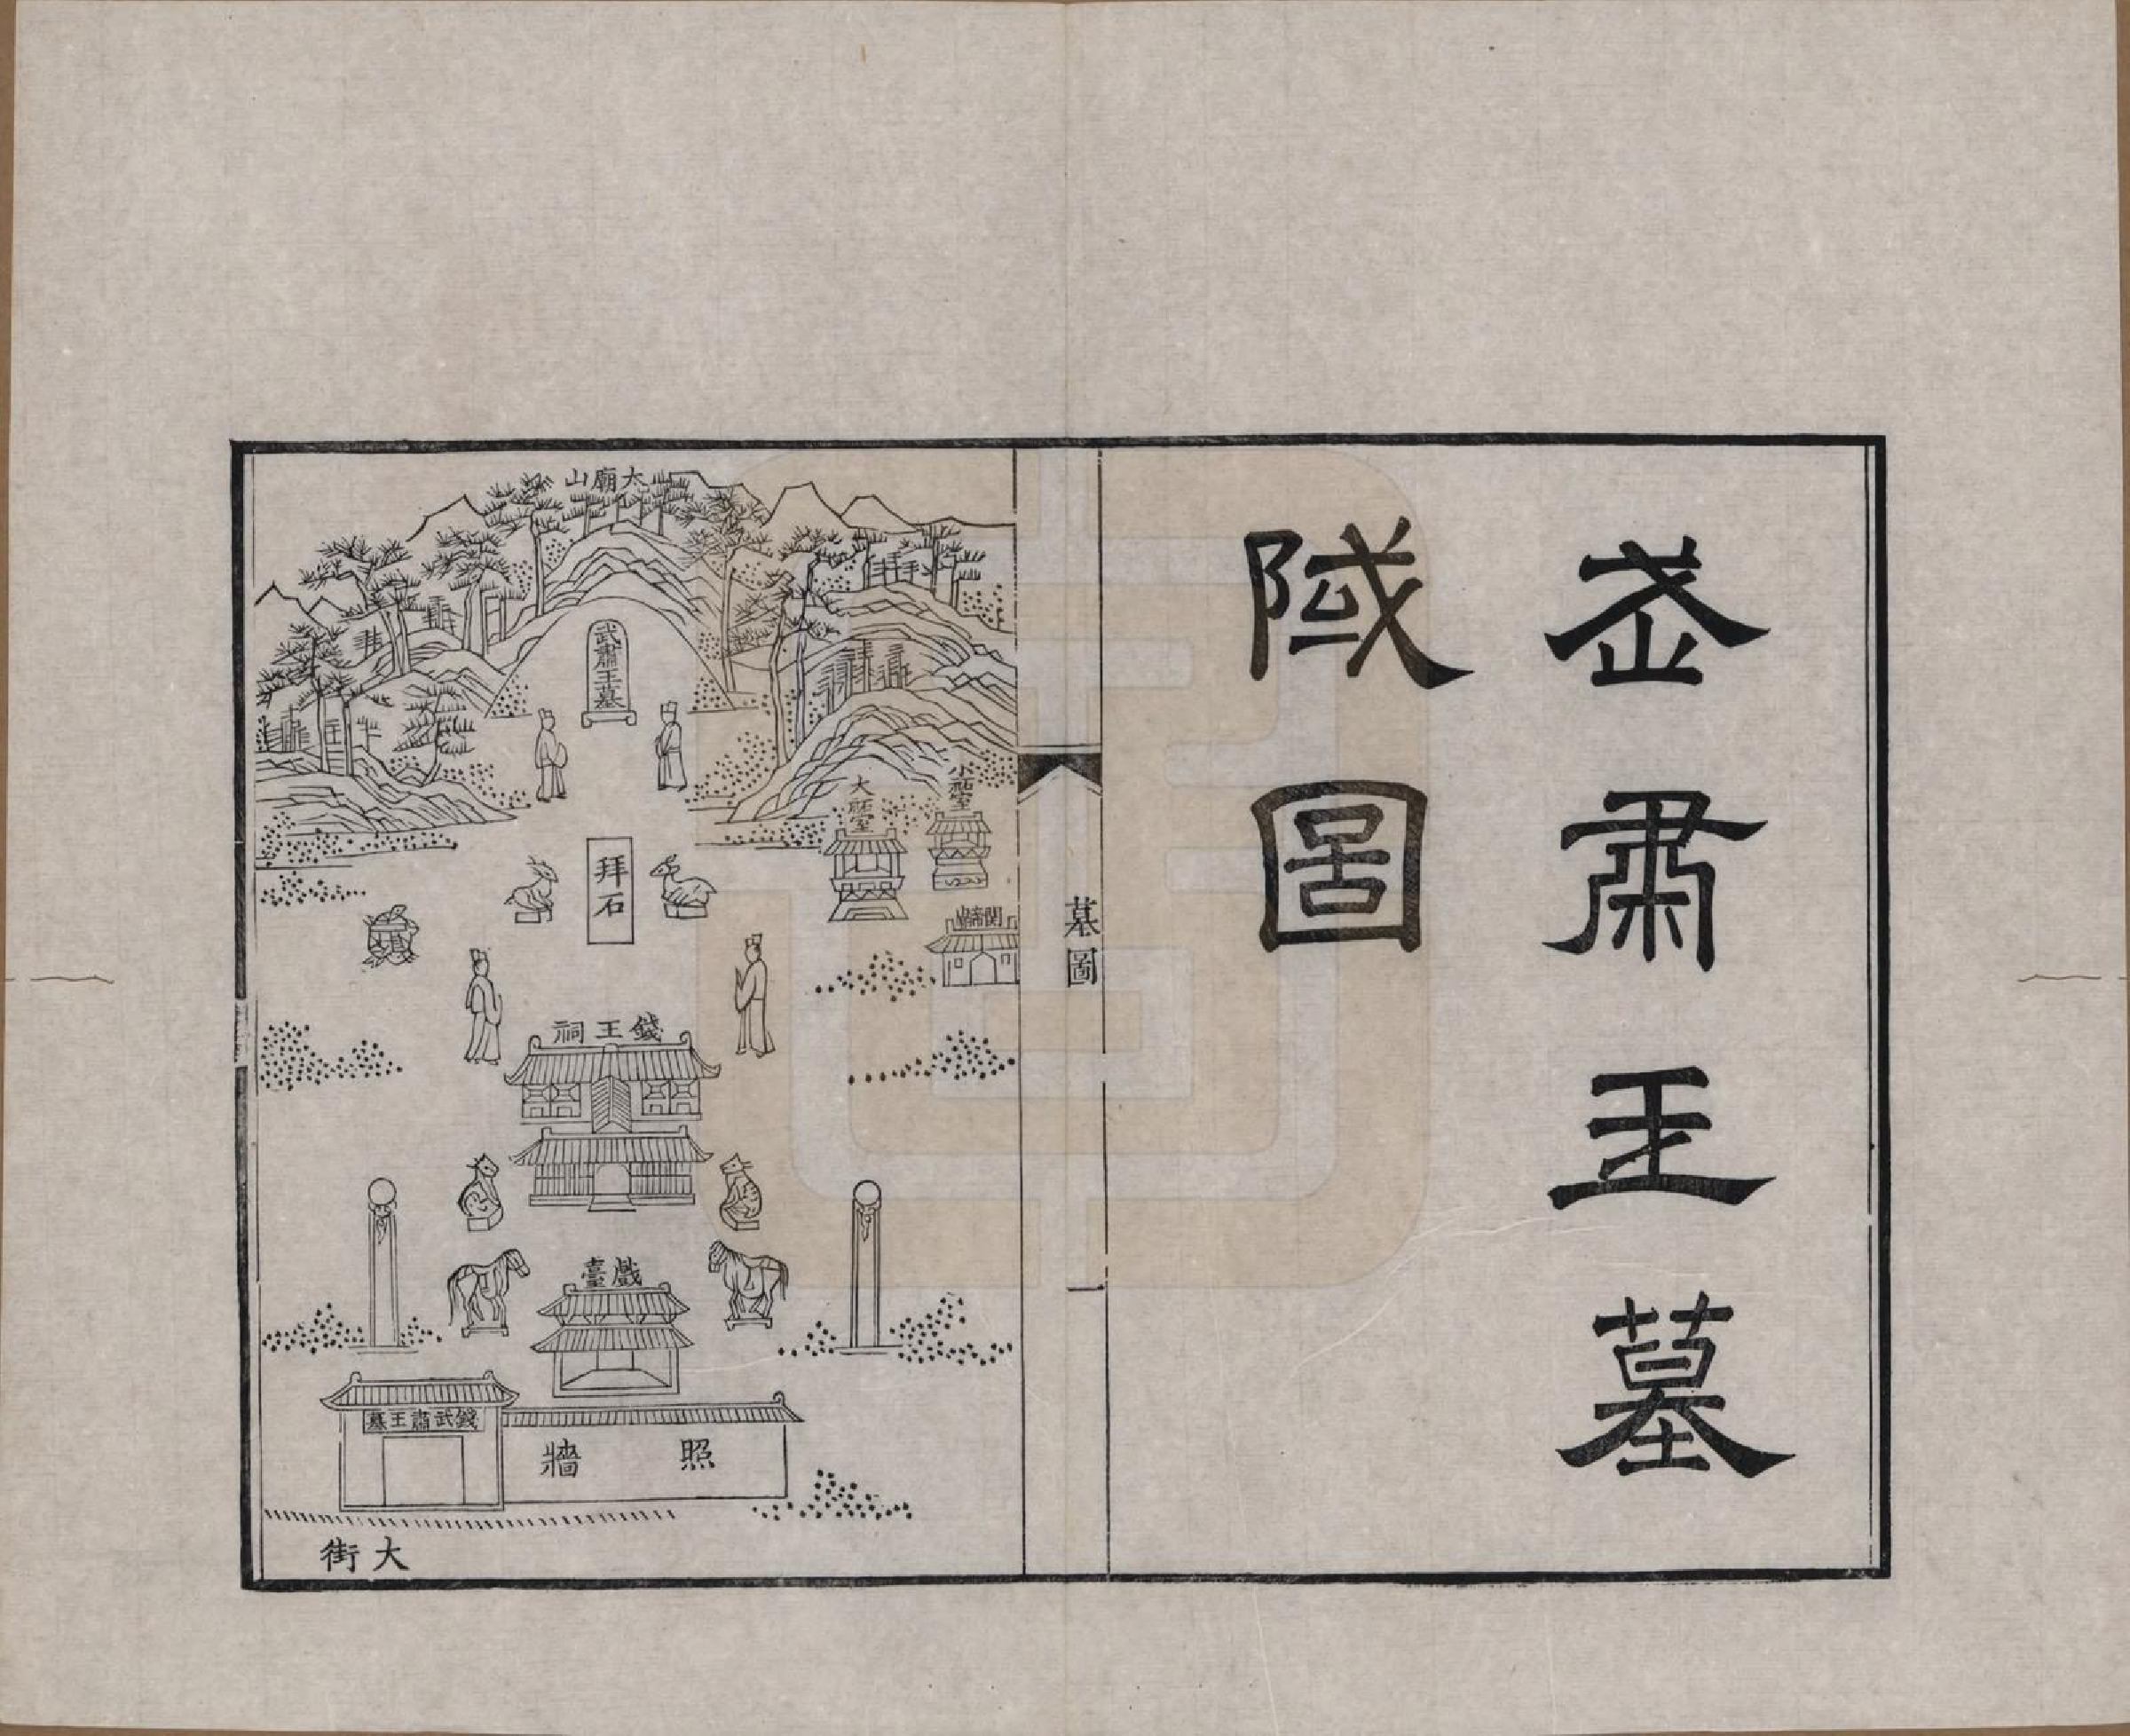 武肅王墓
陿圖
墓圖
一
太廟山
武肅王墓
小祏室
大祏室
拜石
關帝廟
錢王祠
戲臺
錢武肅王墓
照牆
大街